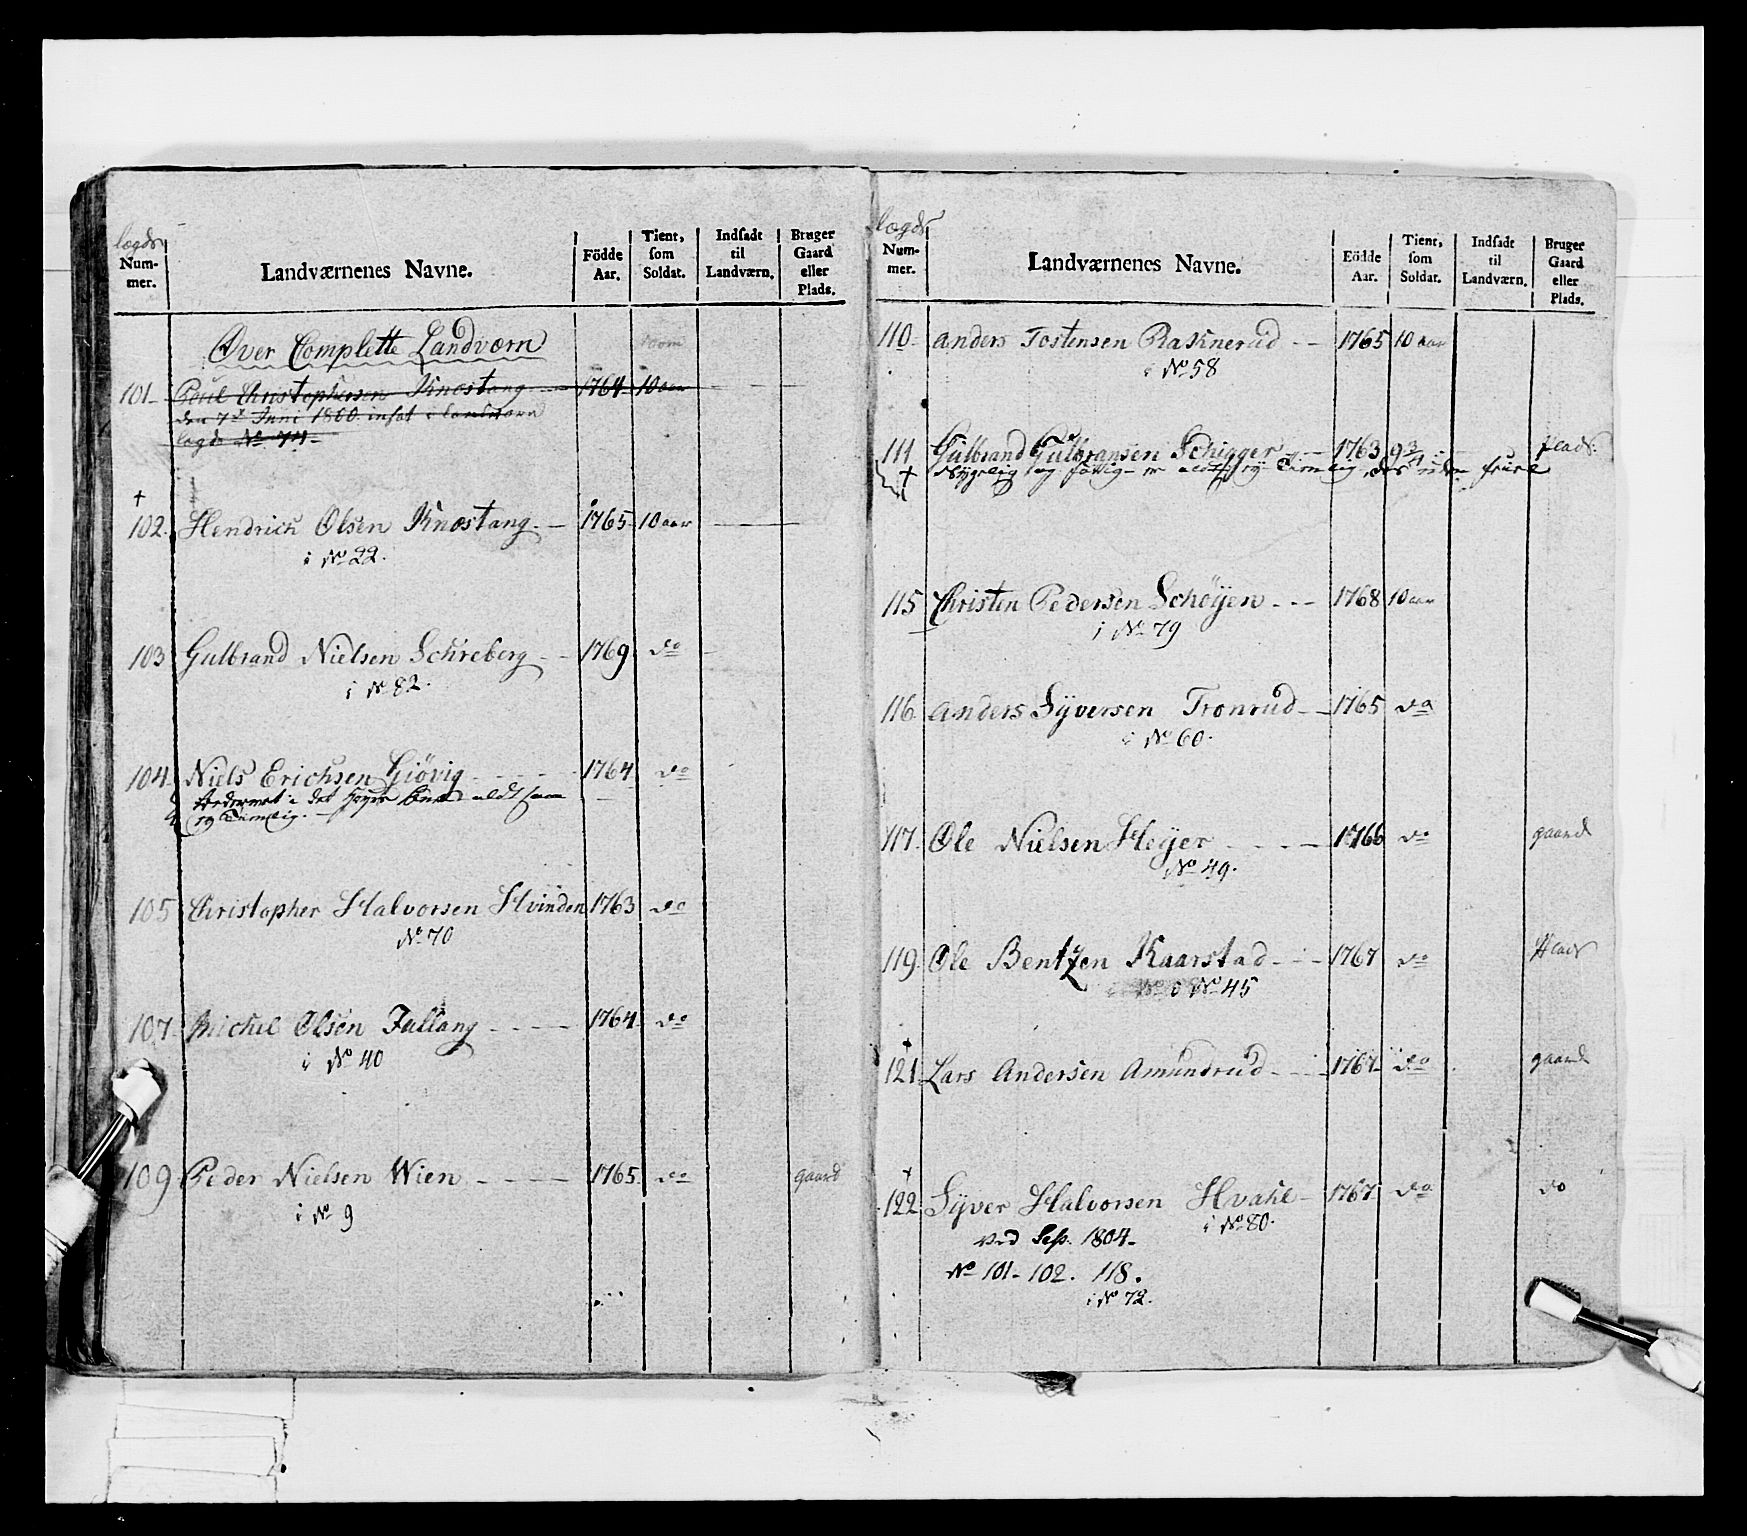 lægds
Num-
mer.
Landværnenes Navne.
Födde
Aar.
Tient,
som
Soldat.
Indsadt
til
Landværn.
Bruger
Gaard
eller
Plads.
Over Complette Landværn
101 Poul Christophersen Knostang 1764 10 aar
den 7de Juni 1800 insat i Landværn
lægd No 74
†
102. Hendrich Olsen Knostang 1765 10 aar
i No 22.
103 Gulbrand Nielsen Schreberg 1769 do
i No 82.
104 Niels Erichsen Giövig 1764 do
i det
105 Christopher Halvorsen Hvinden 1763 do
No 70
107 Michel Olsen Fallang 1764 do
i No 40
109 Peder Nielsen Wien 1765 do gaard
i No 9
lægds
Num-
mer.
Landværnenes Navne.
Födde
Aar.
Tient,
som
Soldat.
Indsadt
til
Landværn.
Bruger
Gaard
eller
Plads.
110 Anders Tostensen Raknerud 1765 10 aar
i No 58
111 Gulbrand Gulbransen Schigger 1763 9 3/4 plads.
† og
115 Christen Pedersen Schöyen 1768 10 aar
i No 79
116 Anders Syversen Tronrud 1765 do
i No 60.
117. Ole Nielsen Heyer 1766 do gaard
No 49.
119. Ole Bentzen Kaarstad 1767 do Plads
i No 45
†
121 Lars Andersen Amundrud 1767 do gaard
†
122 Syver Halvorsen Hvahl 1767 do do
i No 80.
ved Sess. 1804
No 101 - 102. 118.
i No 72.